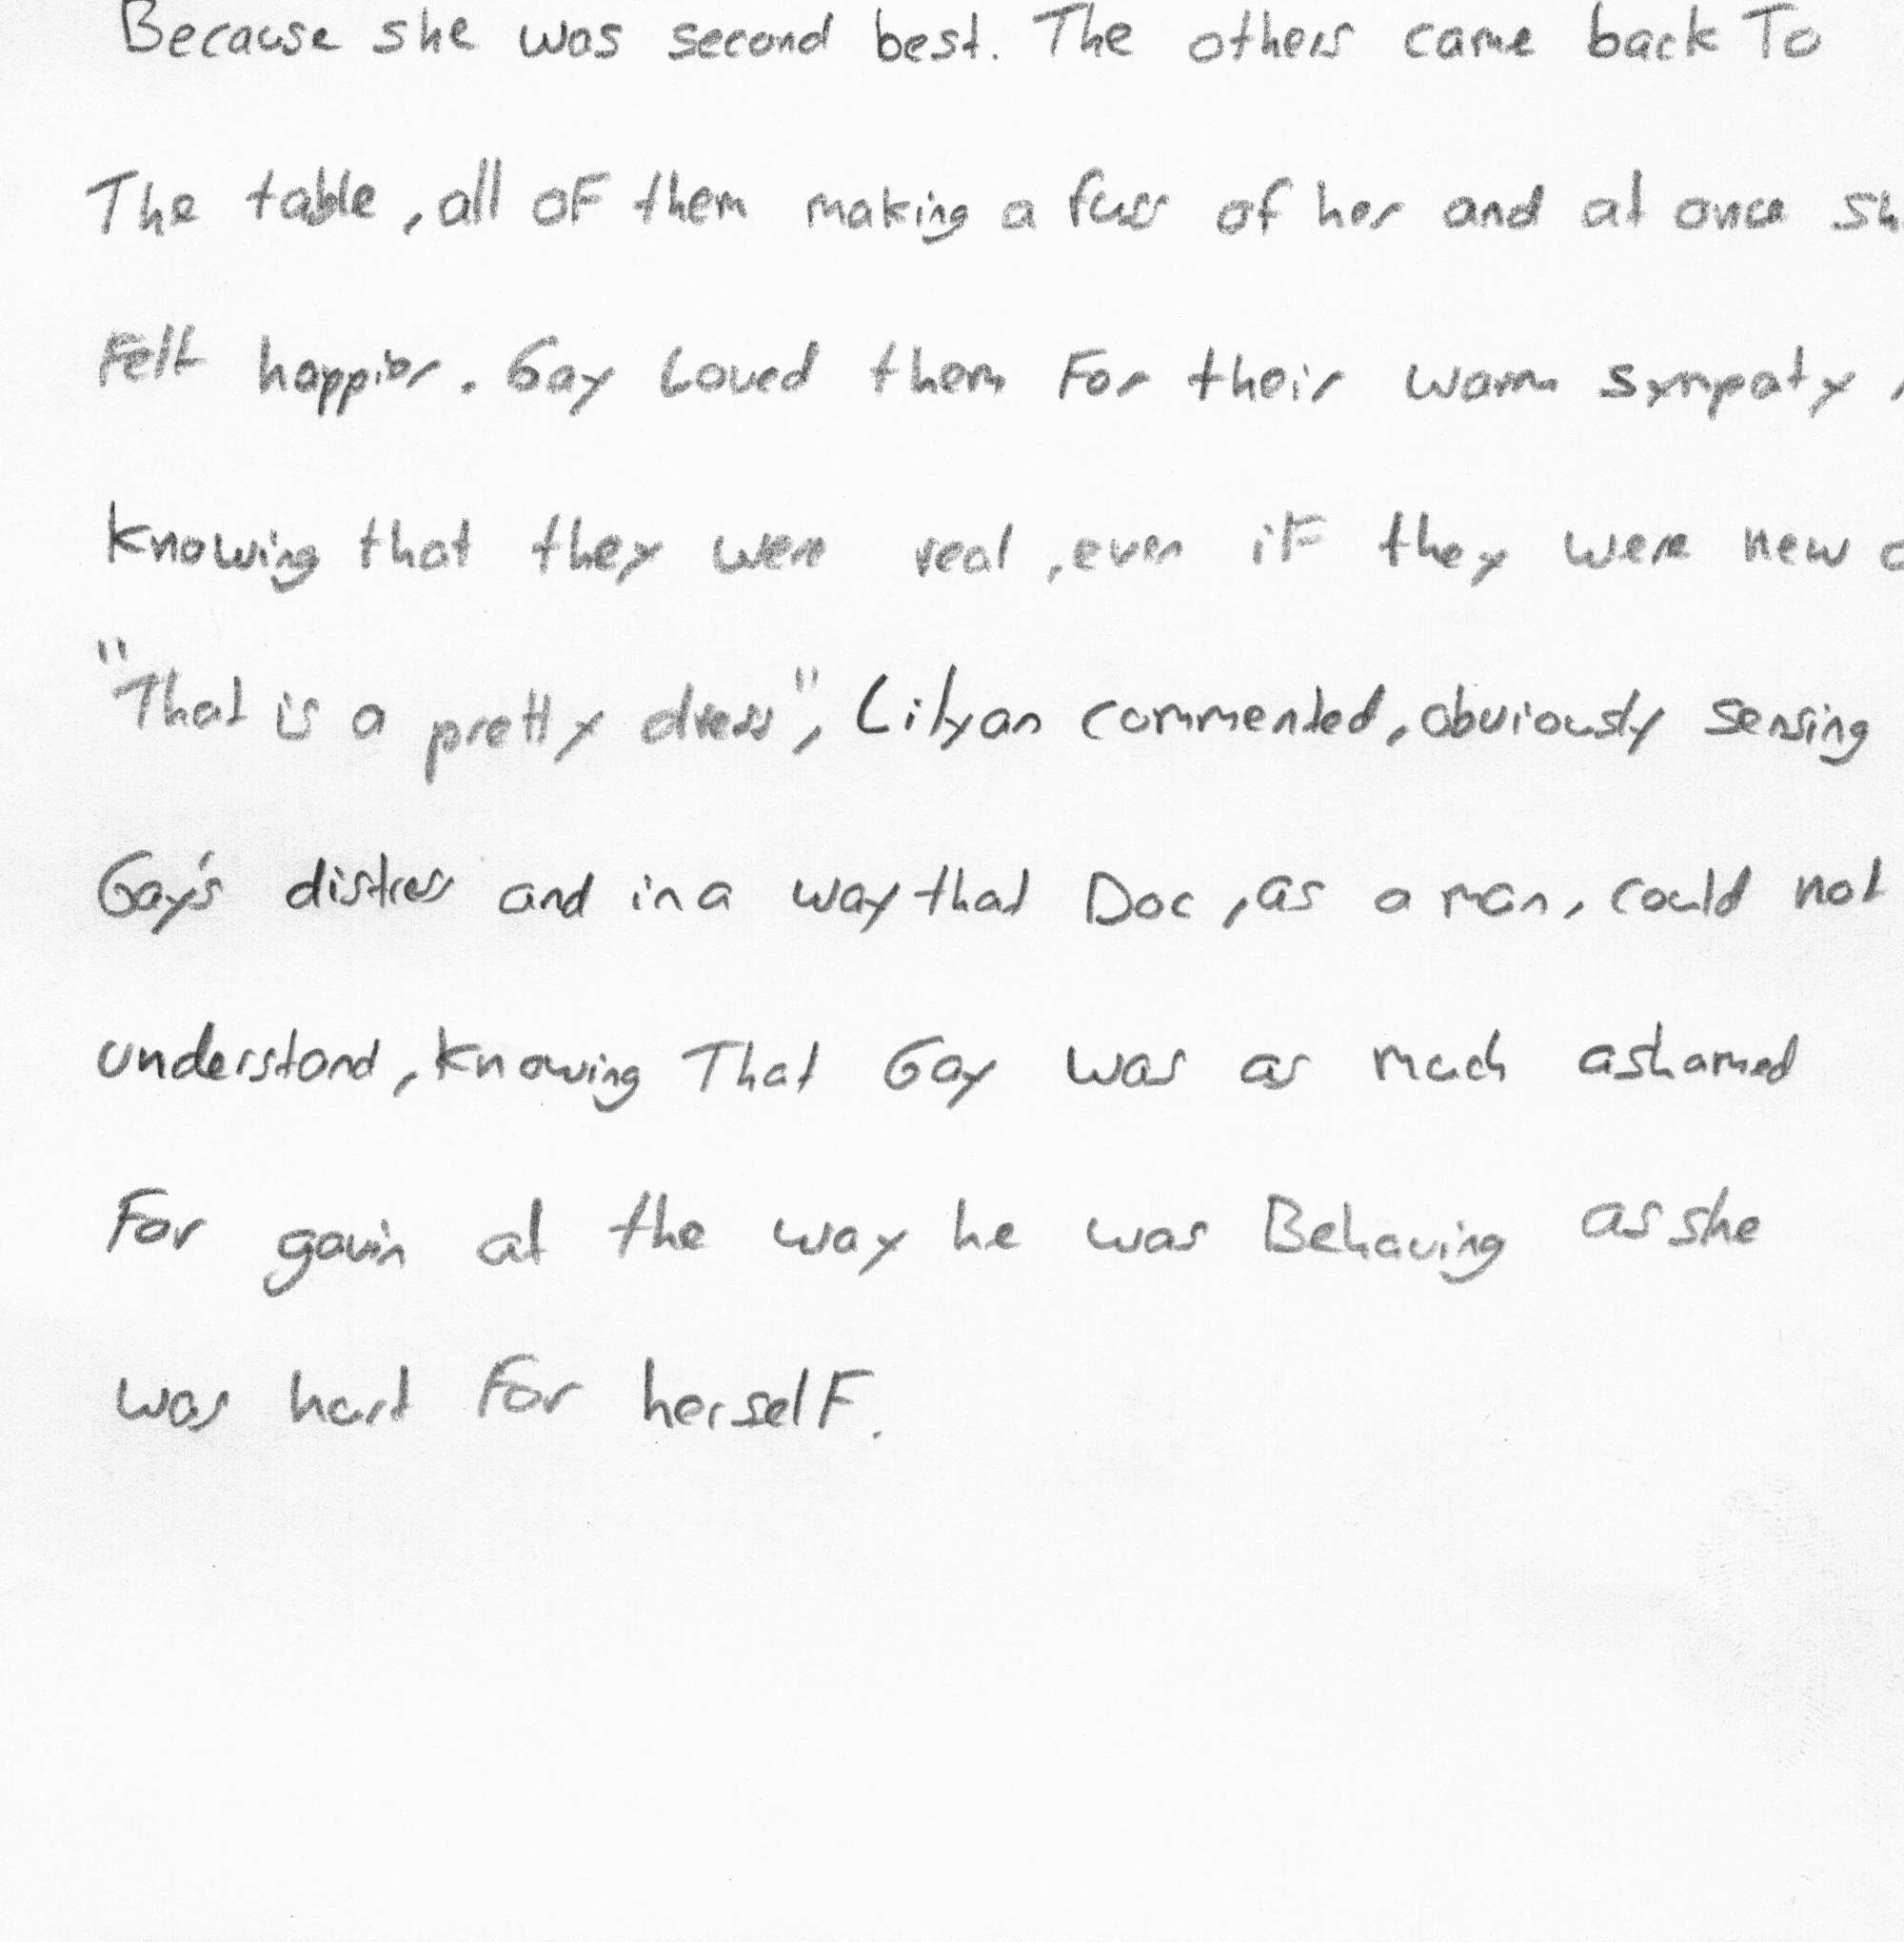 Because she was second best. The others came back To
The table, all oF them making a fuss of her and at once
Felt happier. Gay Loved them For their warm sympaty,
Knowing that they were real, even iF they were new
"That is a pretty dress", Lilyan commented, obviously sensing
Gay's distress and in a way that Doc, as a man, could not
understand, Knowing That Gay was as much ashamed
For gavin at the way he was Behaving as she
was hurt For herselF.